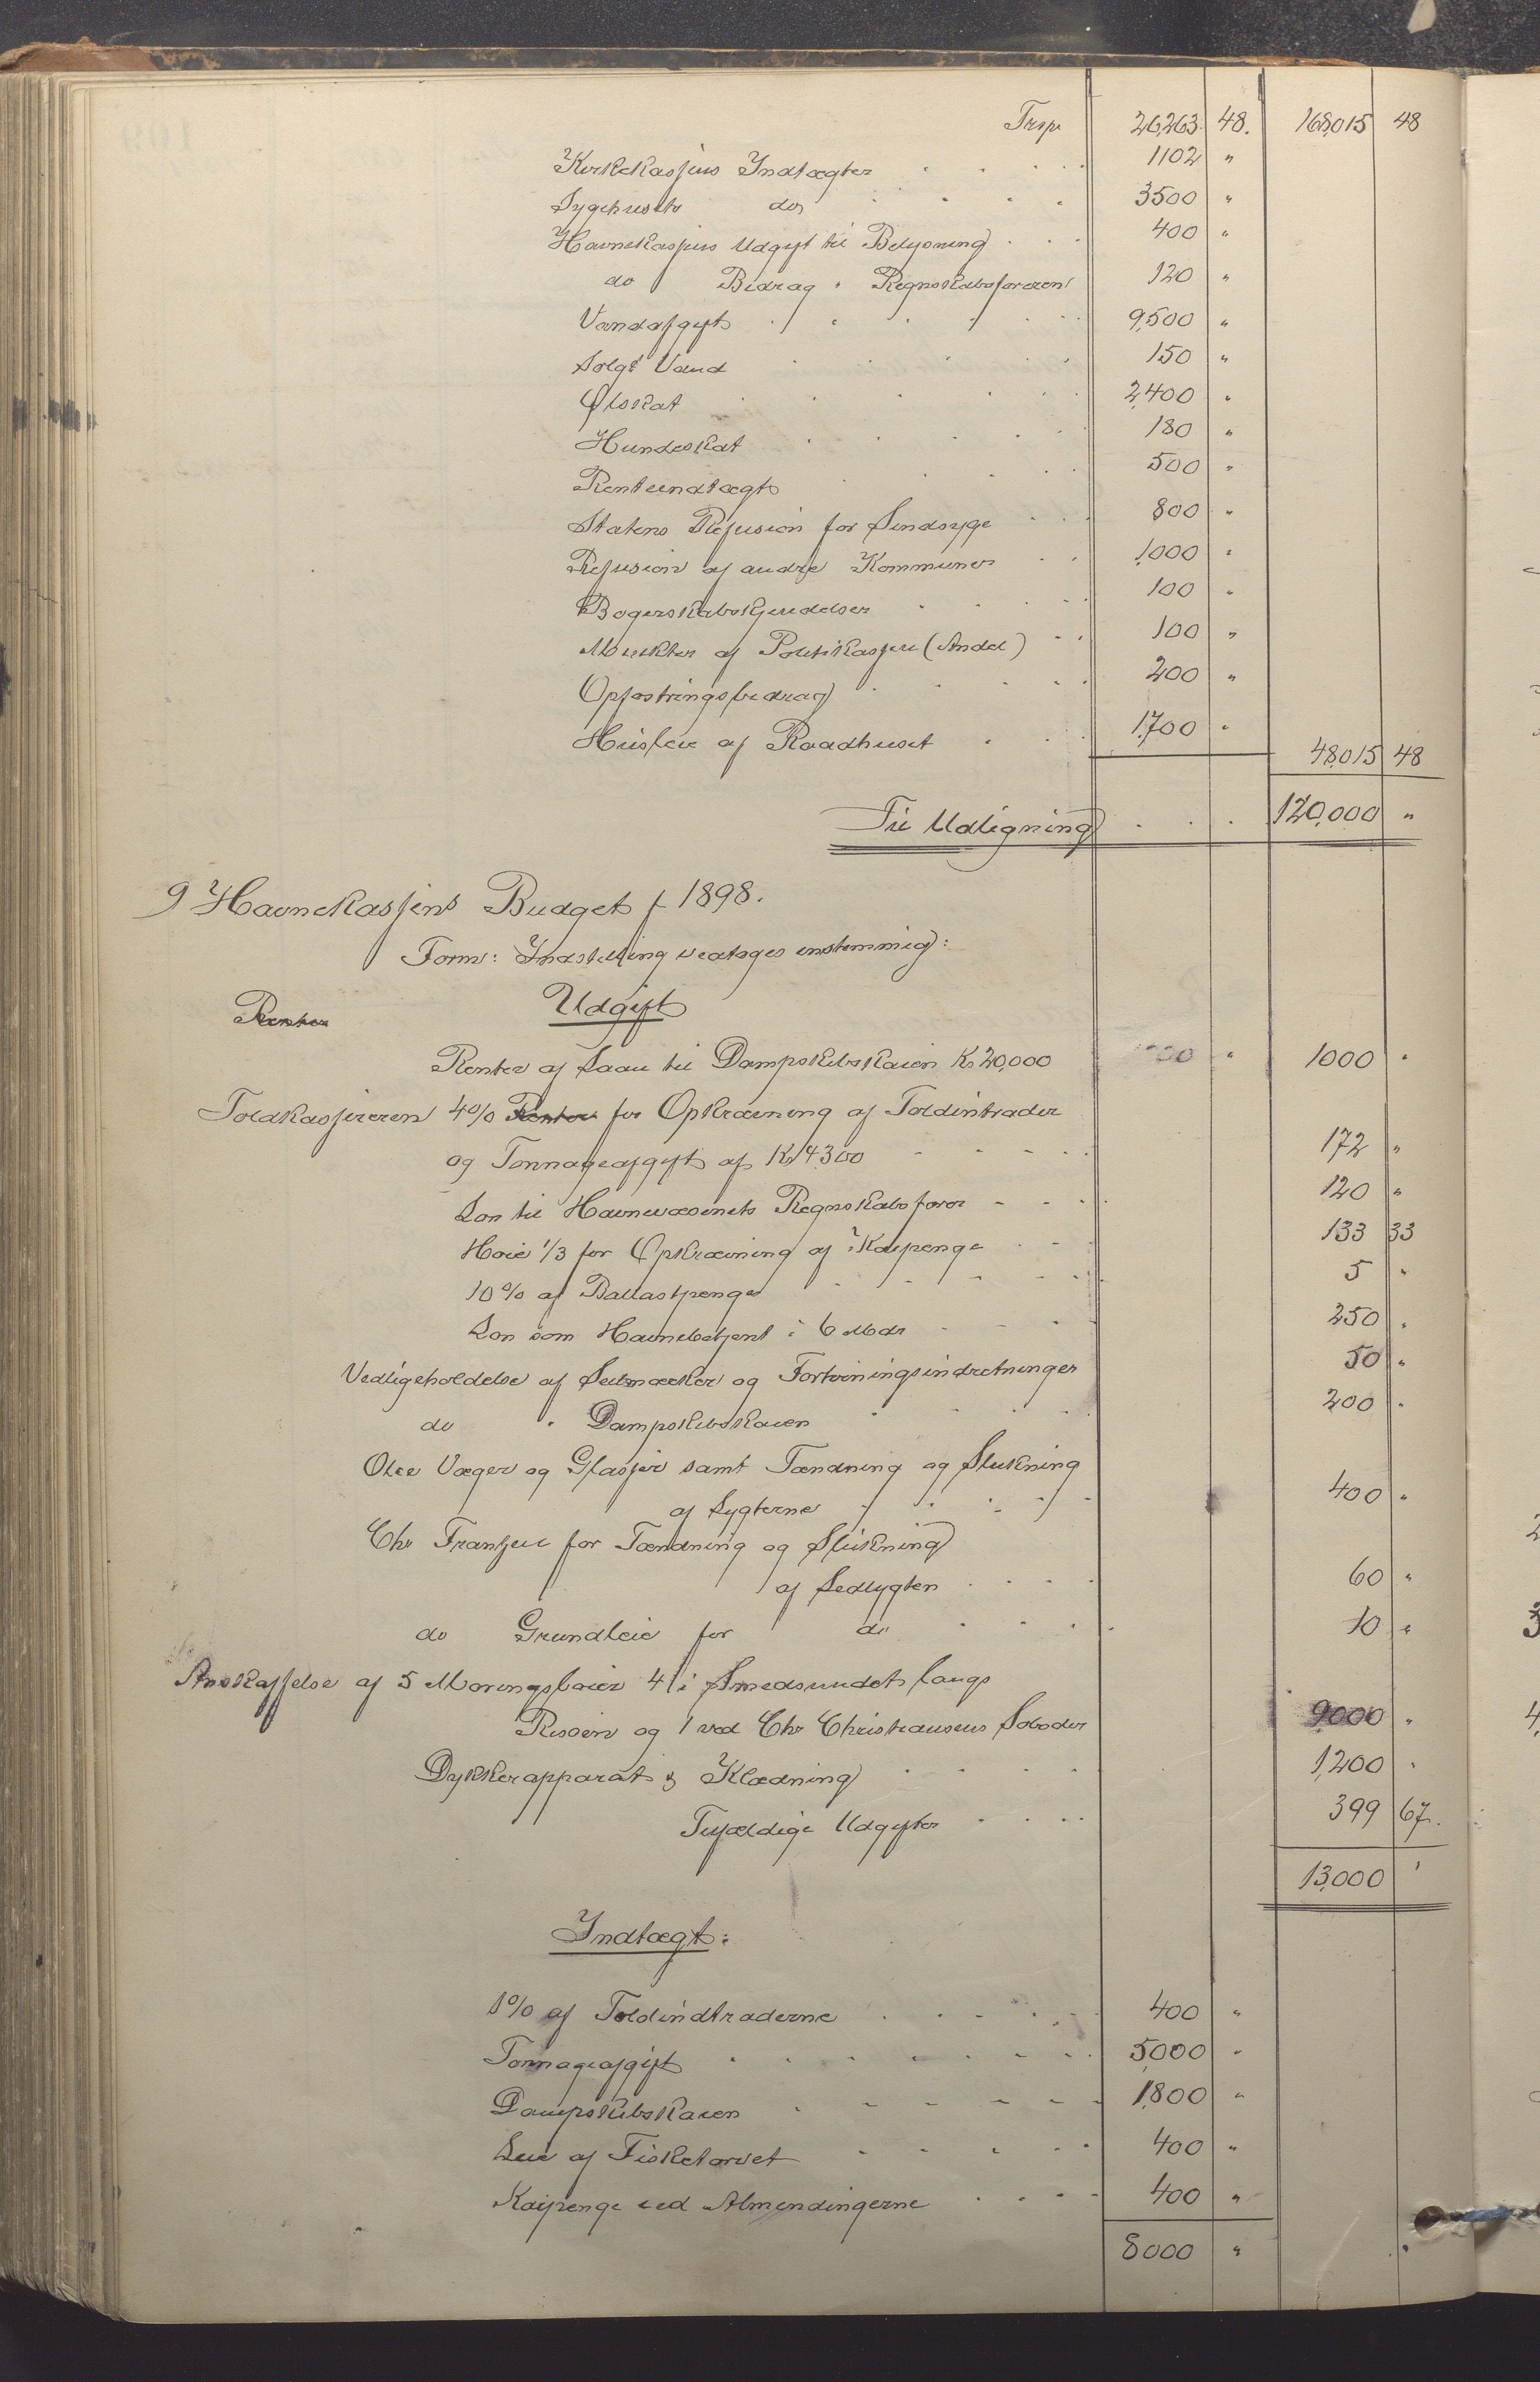 Trsp. 26,263. 48. 168,015 48
Kirkekassens Indtægter 1102 "
Sygehusets do 3500 "
Havnekassens Udgift til Belysning 400 "
do Bidrag " Regnskabsføreren 120 "
Vandafgift 9,500 "
Solgt Vand 150 "
Ølskat 2,400 "
Hundeskat 180 "
Renteindtægt 500 "
Statens Refusion for Sindsyge 800 "
Refusion af andre Kommuner 1,000 "
Borgerskabs 100 "
Mulkter af Politikassen (Andel) 100 "
Opfostringsbidrag 200 "
Husleie af Raadhuset 1,700 " 48,015 48
Til Udligning 120,000 "
9 Havnekassens Budget f 1898.
Form: Indstilling vedtages enstemmig:
Renter Udgift
Renter af Laan til Dampskibskaien Kr 20,000 1000 "
Toldkassereren 4% Renter for Opkrævning af Toldintrader
og Tonnageafgift af Kr 4300 172 "
Løn til Havnevæsenets Regnskabsfører 120 "
Høie 1/3 for Opkrævning af Kaipenge 133 33
10% af Ballastpenge 5 "
Løn som Havnebetjent i 6 Mdr 250 "
Vedligeholdelse af Seilmærker og Fortøiningsindretninger 50 "
do " Dampskibskaien 200 "
Olie Væger og Glasser samt Tændning og Slukning
af Lygterne 400 "
Chr Frantzen for Tændning og Slukning
af Ledlygten 60 "
do Grundleie for do 10 "
Anskaffelse af 5 Moringsbøier 4 i Smedsundet langs
Risøen og 1 ved Chr Christiansens Søboder 9000 "
Dykkerapparat & Klædning 1,200 "
Tilfældige Udgifter 399 67.
13,000 "
Indtægt:
1% af Toldindtraderne 400 "
Tonnageafgift 5,000 "
Dampskibskaien 1,800 "
Leie af Fisketorvet 400 "
Kaipenge ved Almendingerne 400 "
8000 "